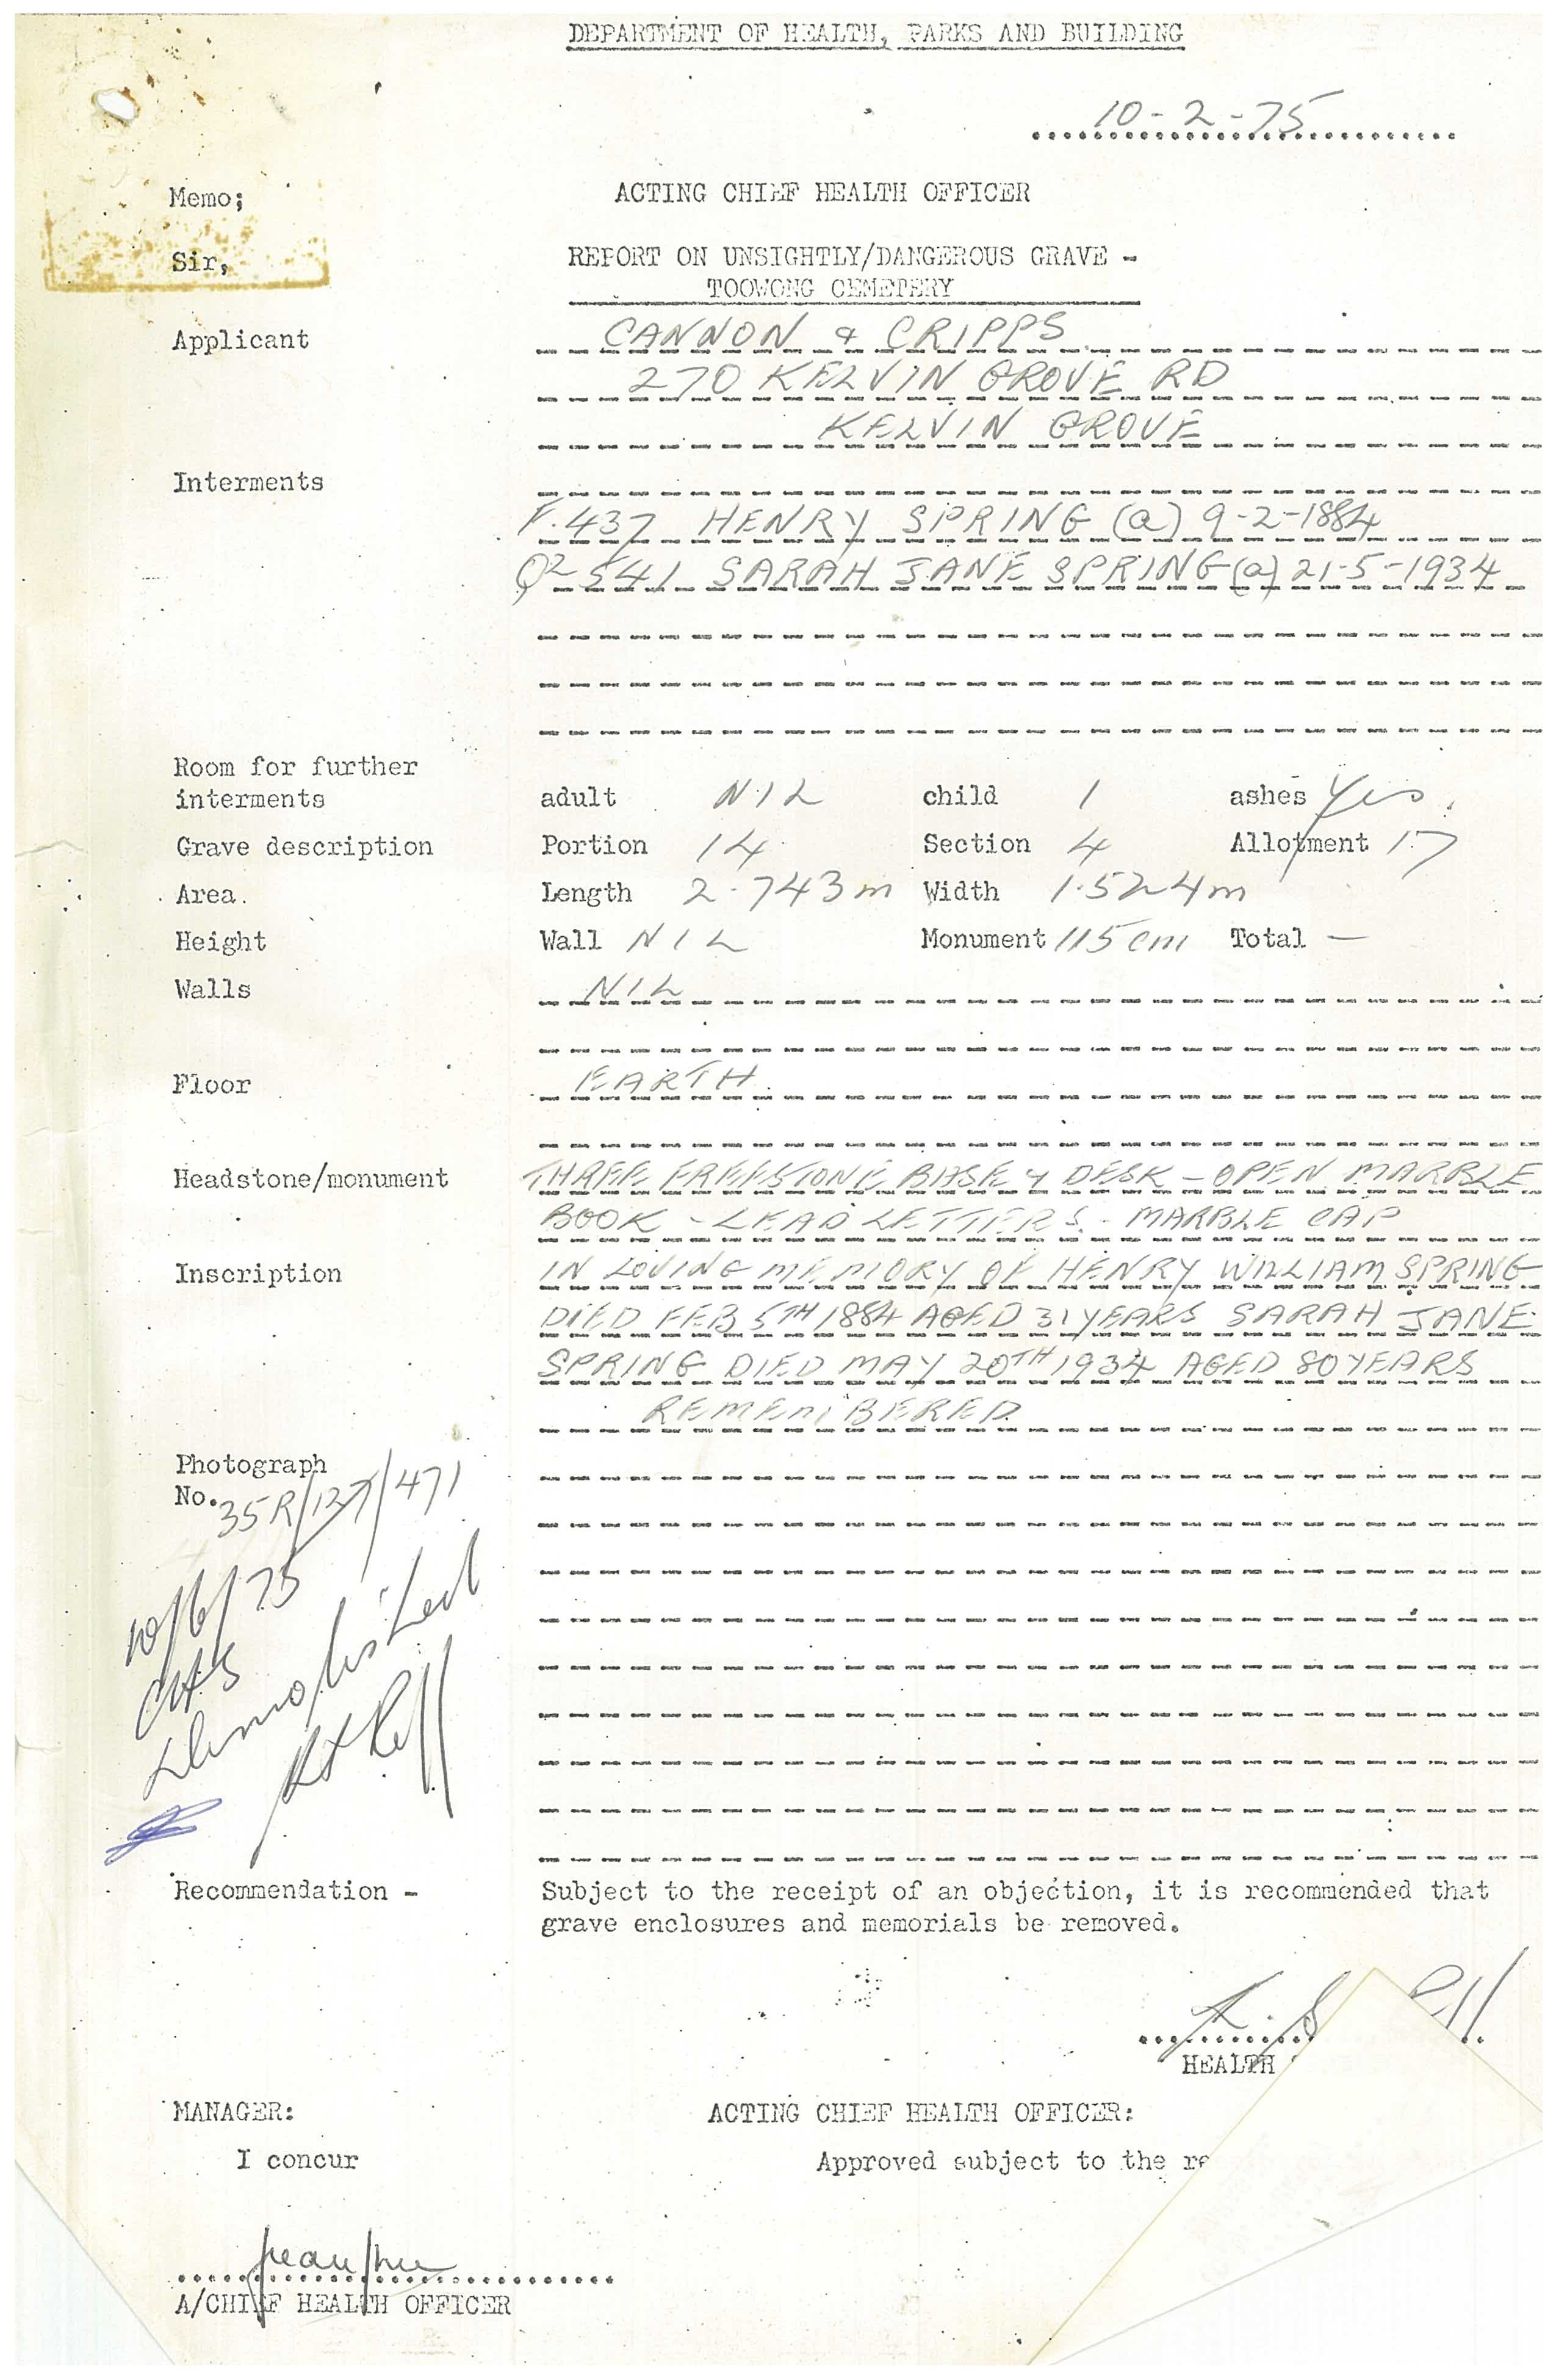 DEPARTMENT OF HEALTH, PARKS AND BUILDING
10-2-75
Memo; ACTING CHIEF HEALTH OFFICER
Sir, REPORT ON UNSIGHTLY/DANGEROUS GRAVE -
TOOWONG CEMETERY
Applicant CANNON & CRIPPS
270 KELVIN GROVE RD
KELVIN GROVE
Interments
F.437 HENRY SPRING (a) 9-2-1884
Q2 541 SARAH JANE SPRING (a) 21-5-1934
Room for further
interments adult NIL child 1 ashes Yes.
Grave description Portion 14 Section 4 Allotment 17
Area. Length 2.743m Width 1.524m
Height Wall NIL Monument 115cm Total —
Walls NIL
Floor EARTH.
Headstone/monument THREE FREESTONE BASE & DESK - OPEN MARBLE
BOOK - LEAD LETTERS - MARBLE CAP
Inscription IN LOVING MEMORY OF HENRY WILLIAM SPRING
DIED FEB 5TH 1884 AGED 31 YEARS SARAH JANE
SPRING DIED MAY 20TH 1934 AGED 80 YEARS
REMEMBERED
Photograph
No. 35R/127/471
10/6/75
Demolished
Recommendation - Subject to the receipt of an objection, it is recommended that
grave enclosures and memorials be removed.
HEALTH
MANAGER: ACTING CHIEF HEALTH OFFICER:
I concur Approved subject to the re
A/CHIEF HEALTH OFFICER